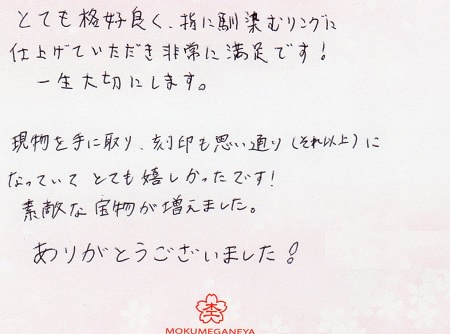 とても格好良く、指に馴染むリングに
仕上げていただき非常に満足です!
一生大切にします。
現物を手に取り、刻印も思い通り(それ以上)に
なっていて とても嬉しかったです!
素敵な宝物が増えました。
ありがとうございました!
MOKUMEGANEYA